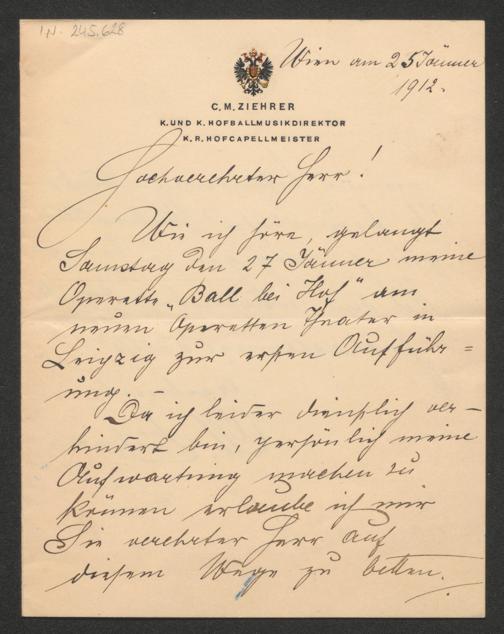 I.N. 245.628
Wien am 25 Jänner
1912.
C. M. ZIEHRER
K. UND K. HOFBALLMUSIKDIREKTOR
K. R. HOFCAPELLMEISTER
Hochverehrter Herr!
Wie ich höre, gelangt
Samstag den 27 Jänner meine
Operette „Ball bei Hof" am
neuen Operetten Theater in
Leipzig zur ersten Aufführ=
ung. –
Da ich leider dienstlich ver–
hindert bin, persönlich meine
Aufwartung machen zu
können erlaube ich mir
Sie verehrter Herr auf
diesem Wege zu bitten.